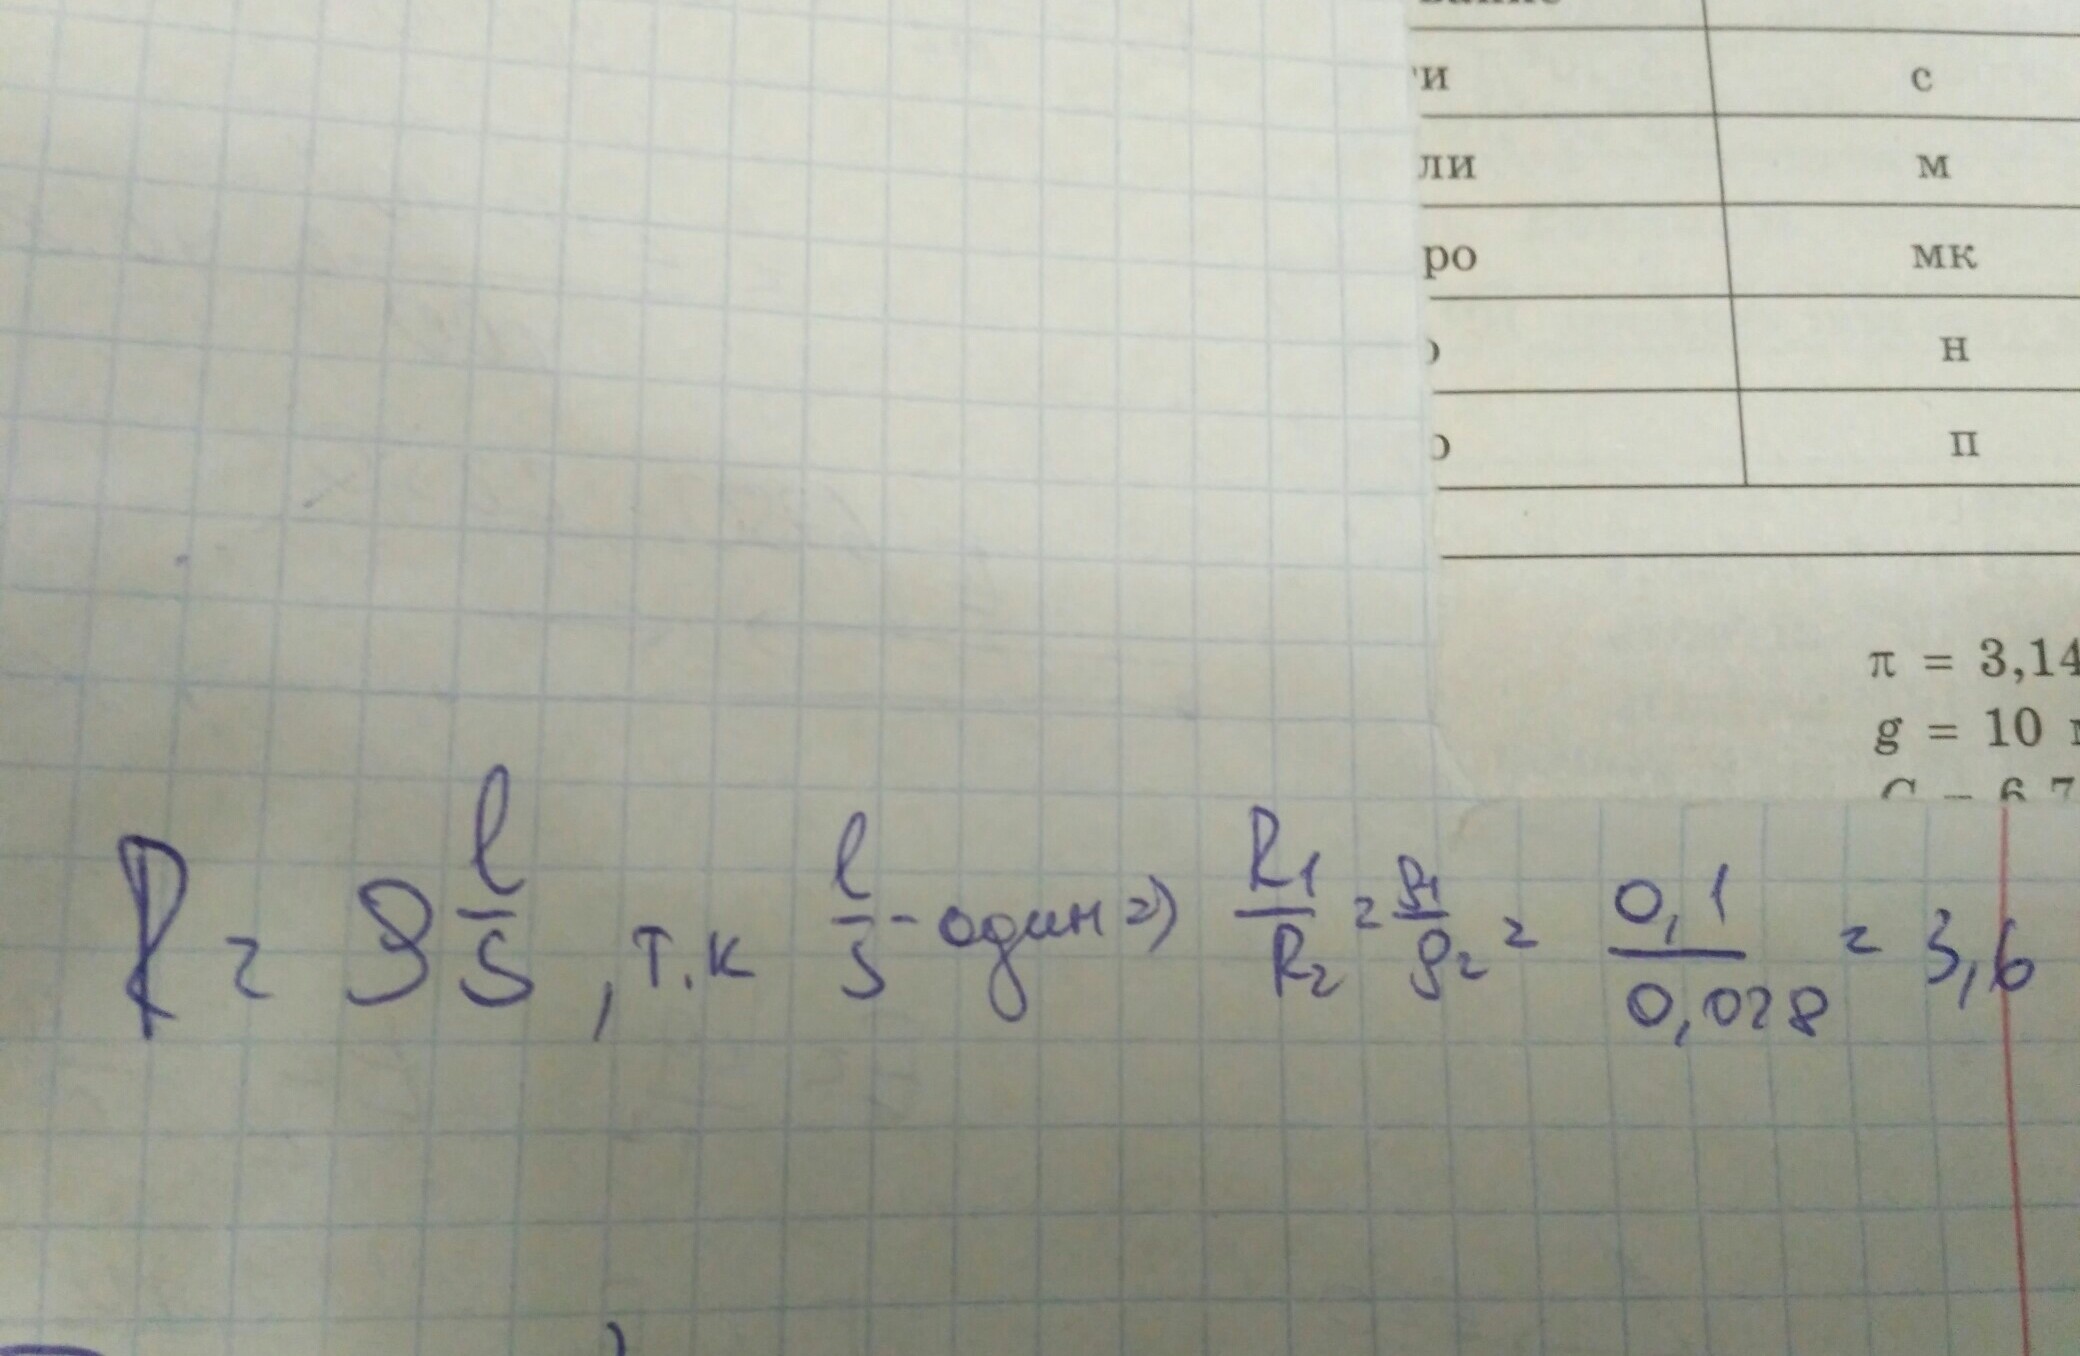 ти с
ли м
ро мк
о н
о п
π = 3,14
g = 10
R = ρ l/S , т.к l/S - один => R₁/R₂ = ρ₁/ρ₂ = 0,1/0,028 = 3,6